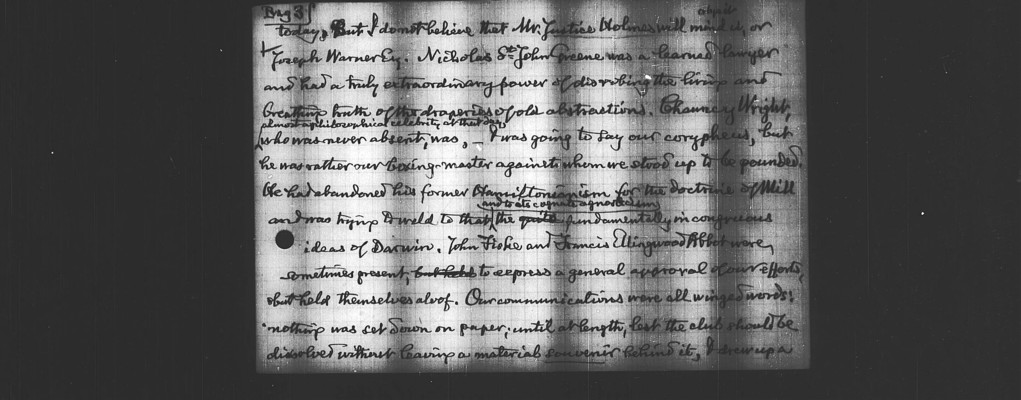 Bag 3
today. But I do not believe that Mr. Justice Holmes will mind it, or
Joseph Warner Esq. Nicholas St. John Greene was a learned lawyer
and had a truly extraordinary power of disrobing the living and
breathing truth of the draperies of old abstractions. Chauncey Wright,
almost a philosophical celebrity at that day
who was never absent, was, — I was going to say our corypheus, but
he was rather our boxing-master against whom we stood up to be pounded.
He had abandoned his former Hamiltonianism for the doctrine of Mill
and to its cognate agnosticism
and was trying to weld to that the quite fundamentally incongruous
ideas of Darwin. John Fiske and Francis Ellingwood Abbot were,
sometimes present, but held to express a general approval of our efforts,
but held themselves aloof. Our communications were all winged words:
nothing was set down on paper; until at length, lest the club should be
dissolved without leaving a material souvenir behind it, I drew up a